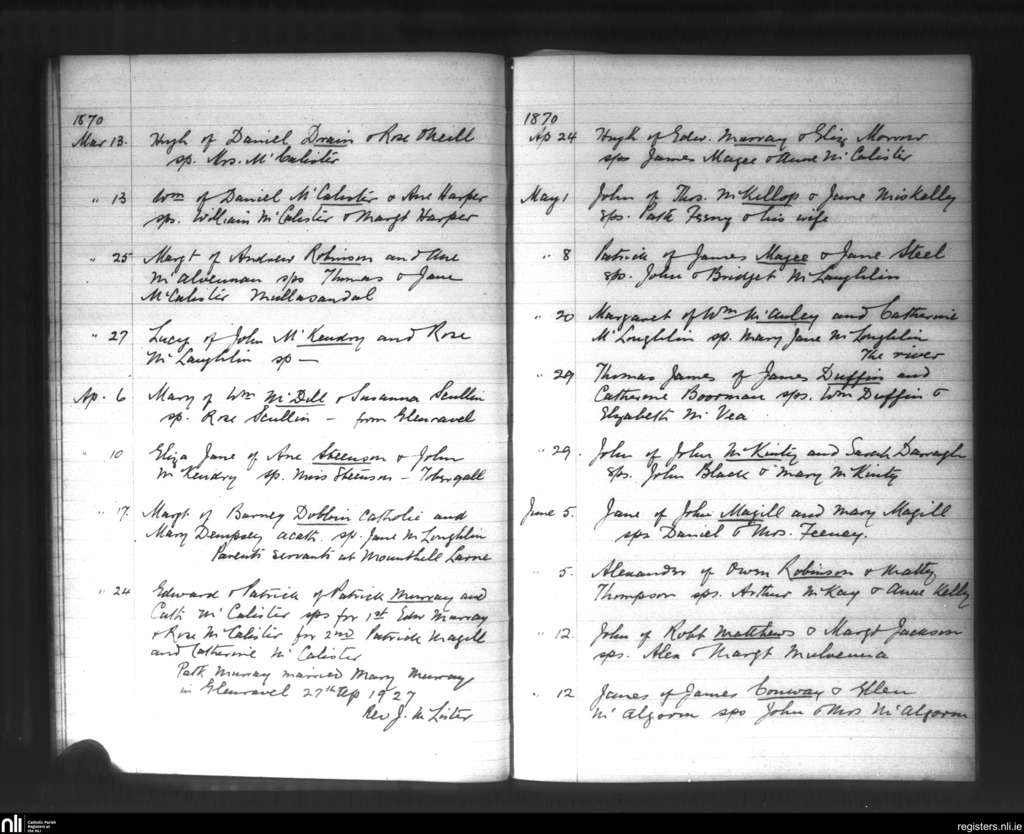 1870
Mar 13. Hugh of Daniel Drain & Rose O'Neill
sp. Mrs. McCalister
" 13 Wm of Daniel McCalister & Ane Harper
sps. William McCalister & Margt Harper
" 25 Margt of Andrew Robinson and Ane
McAlvennan sps Thomas & Jane
McCalister Mullasandal
" 27 Lucy of John McKendry and Rose
McLaughlin sp —
Ap. 6 Mary of Wm McDell & Susanna Scullin
sp. Rose Scullin — from Glenravel
" 10 Eliza Jane of Ane Steenson & John
McKendry sp. Miss Steenson —
" 17. Margt of Barney Dobbin Catholic and
Mary Dempsey acath. sp. Jane McLoughlin
Parents servants at Mounthill Larne
" 24 Edward & Patrick of Patrick Murray and
Cath McCalister sps for 1st Edw Murray
& Rose McCalister for 2nd Patrick Magill
and Catherine McCalister
Patk Murray married Mary Murray
in Glenravel 27th Sep 1927
Rev J. McLister
1870
Ap 24 Hugh of Edw. Murray & Eliz Morrow
sps James Magee & Anne McCalister
May 1 John of Thos. McKillop & Jane Miskelly
sps. Patk Feeny & his wife
" 8 Patrick of James Magee & Jane Steel
sp. John & Bridget McLaughlin
" 20 Margaret of Wm McAuley and Catherine
McLoughlin sp. Mary Jane McLoughlin
The river
" 29 Thomas James of James Duffin and
Catherine Boorman sps. Wm Duffin &
Elizabeth McVea
" 29. John of John McKinty and Sarah Darragh
sps. John Black & Mary McKinty
June 5. Jane of John Magill and Mary Magill
sps Daniel & Mrs. Feeney.
" 5. Alexander of Owen Robinson & Matty
Thompson sps. Arthur McKay & Anne Kelly
" 12. John of Robt Matthews & Margt Jackson
sps. Alex & Margt Mulvenna
" 12 James of James Conway & Ellen
McAlgorm sps John & Mrs McAlgorm
nli Catholic Parish
Registers at
the NLI
registers.nli.ie